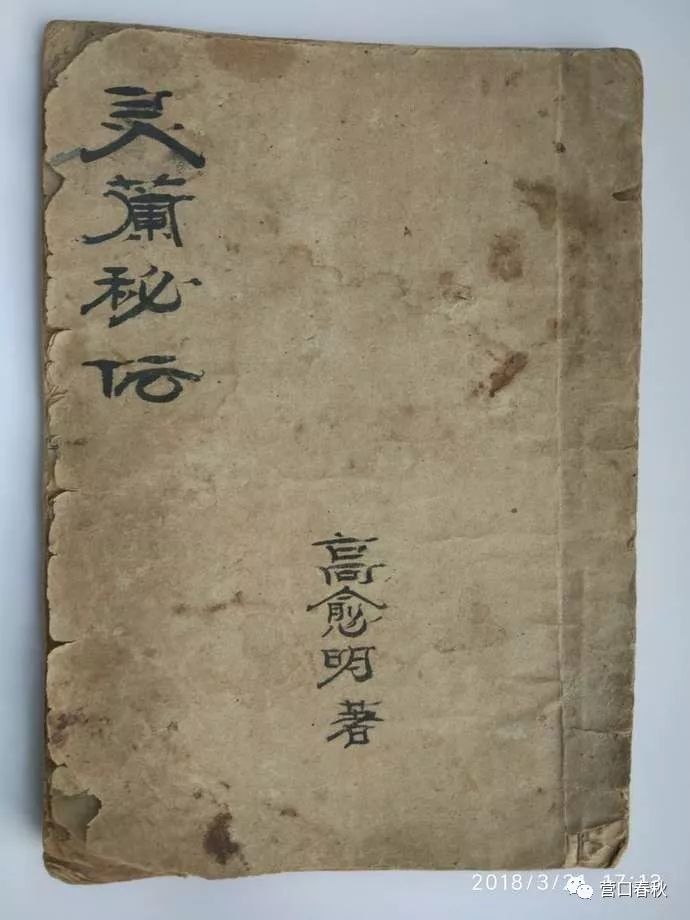 灵蘭秘伝
高愈明著
2018/3/21 17:13
营口春秋